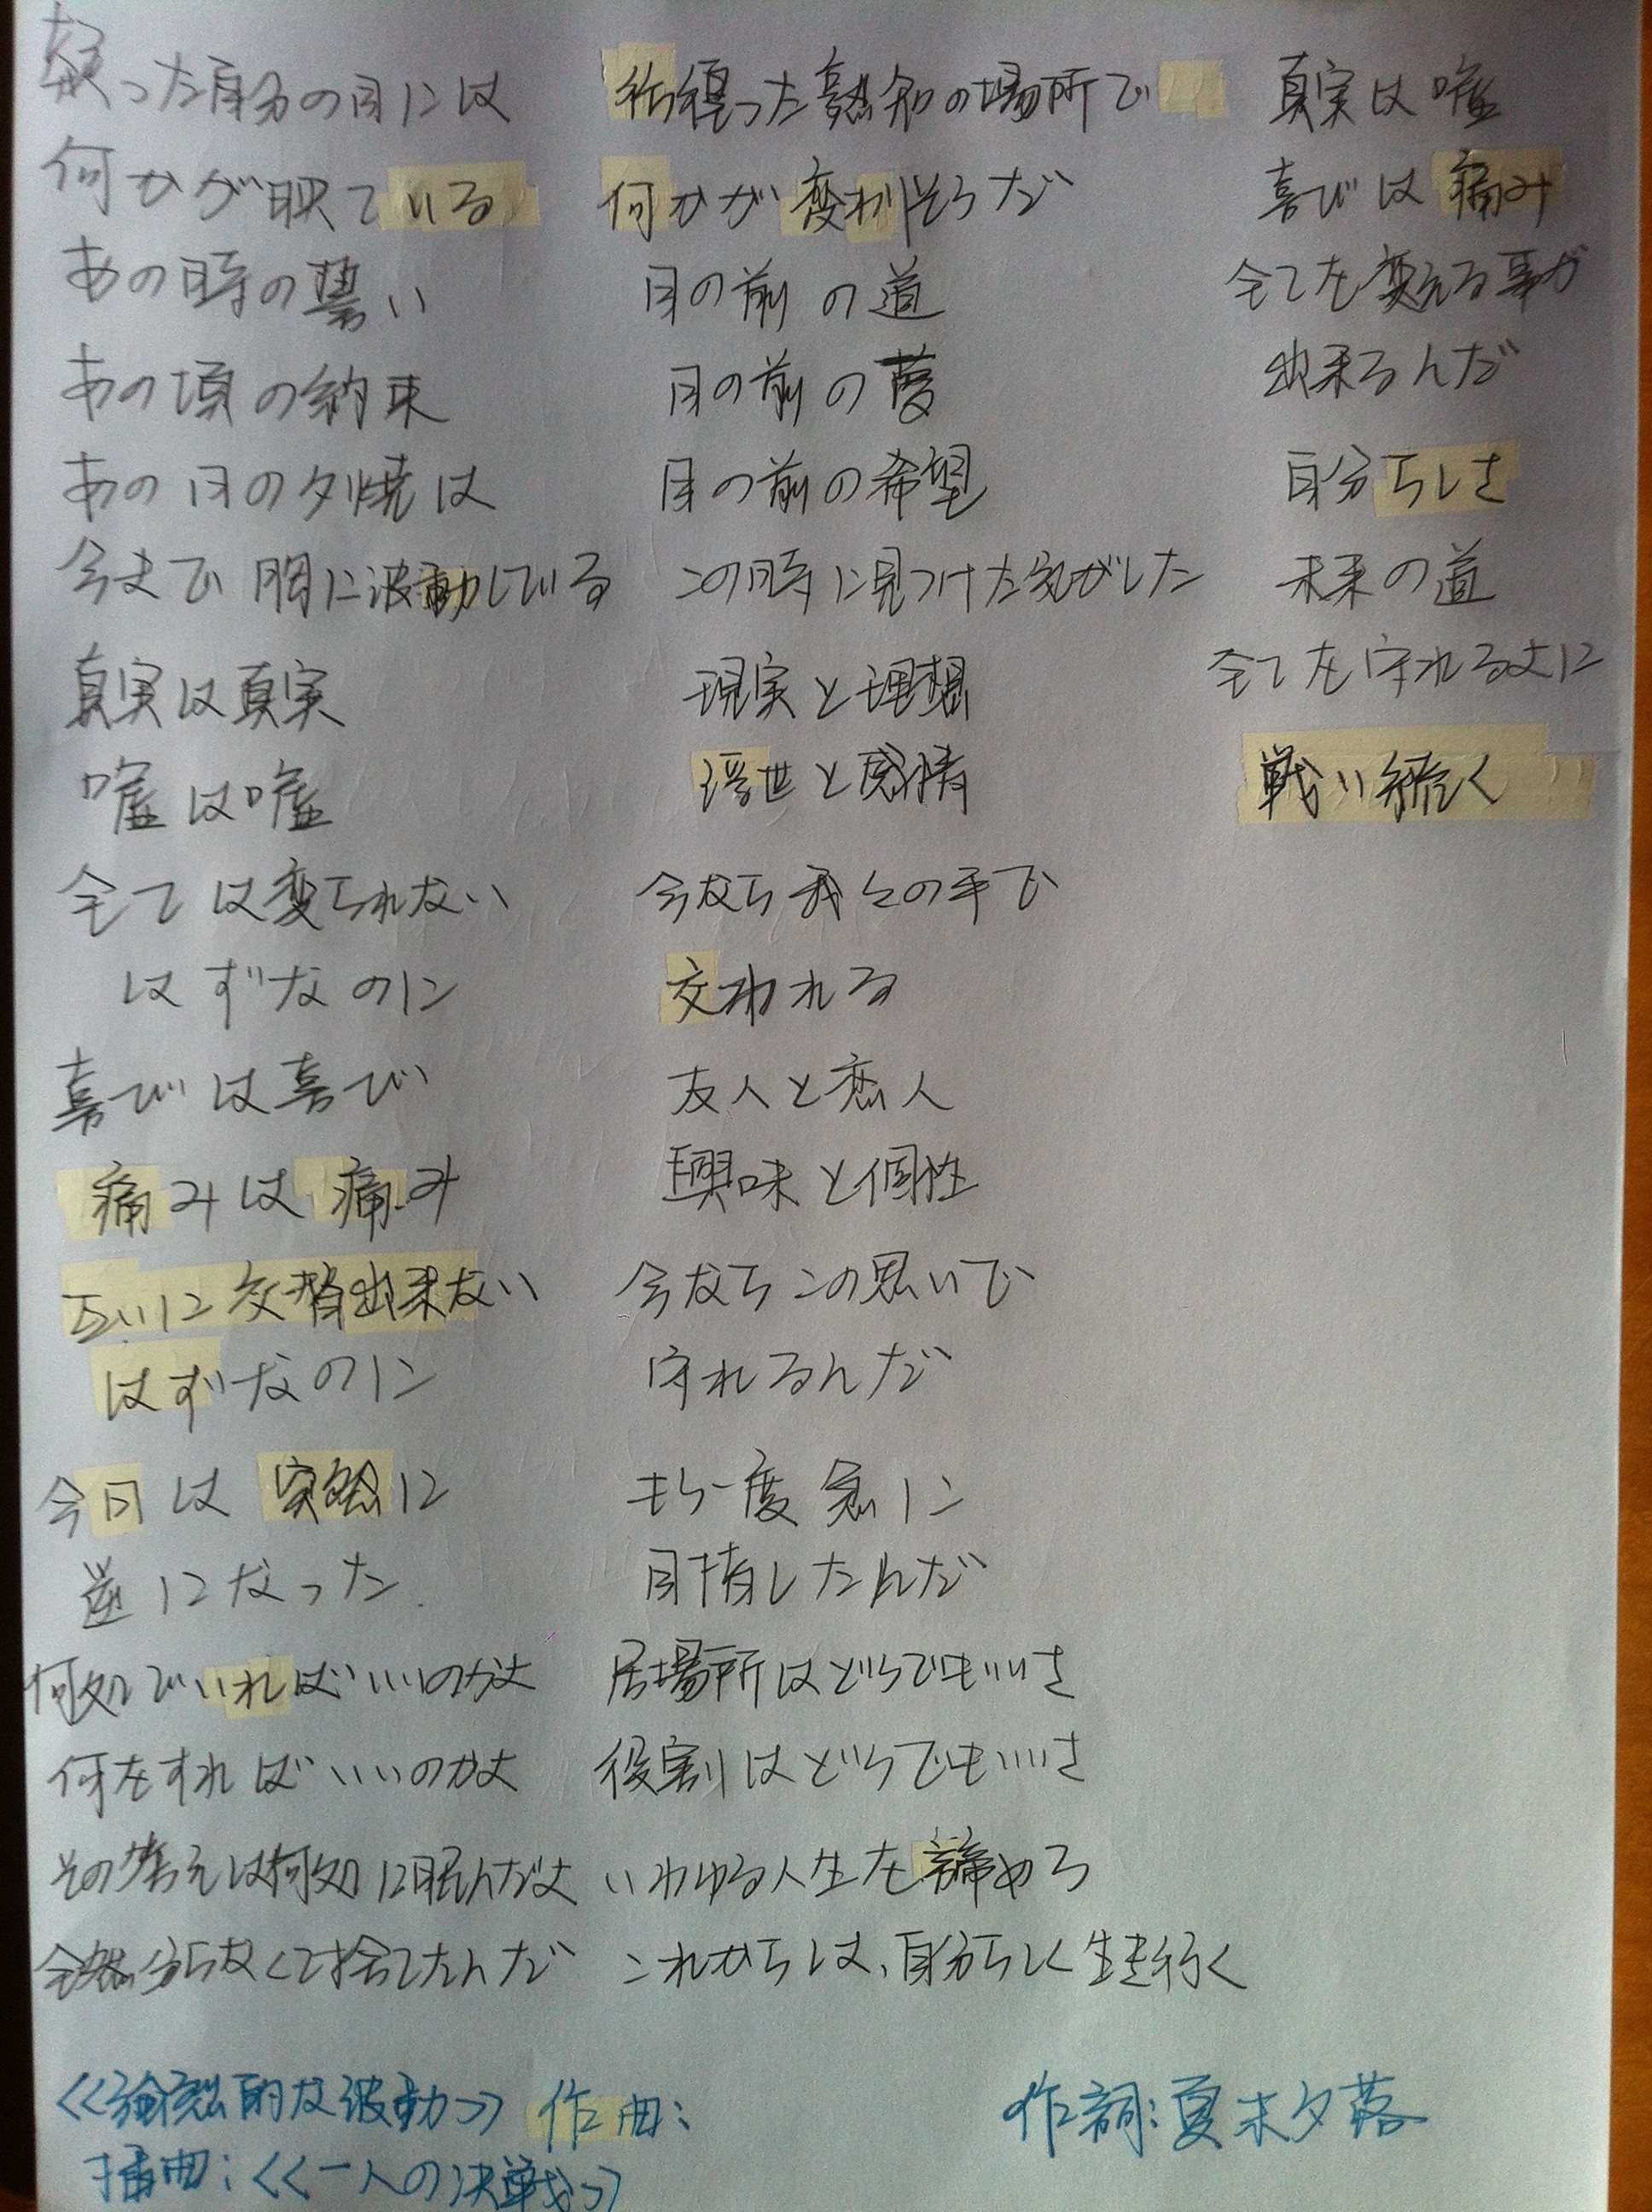 った自分の目には
何かが映ている
あの時の誓い
あの頃の約束
あの日の夕焼は
今まで胸に波動している
真実は真実
嘘は嘘
全ては変られない
はずなのに
喜びは喜び
痛みは痛み
互いに交替出来ない
はずなのに
今日は突然に
逆になった
何処でいればいいのかよ
何をすればいいのかよ
その考えは何処に眠んだよ
全然分らなくて捨てたんだ
彷徨った熟知の場所で
何かが変わりそうだ
目の前の道
目の前の夢
目の前の希望
この時に見つけた気がした
現実と理想
浮世と感情
今なら我々の手で
交われる
友人と恋人
興味と個性
今ならこの思いで
守れるんだ
もう一度急に
目指したんだ
居場所はどうでもいいさ
役割はどうでもいいさ
いわゆる人生を諦めろ
これからは、自分らしく生き行く
真実は嘘
喜びは痛み
全てを変える事が
出来るんだ
自分らしさ
未来の道
全てを守れるよに
戦い続く
<<強烈的な波動>> 作曲:
作詞:夏末夕落
插曲:<<一人の決戦>>